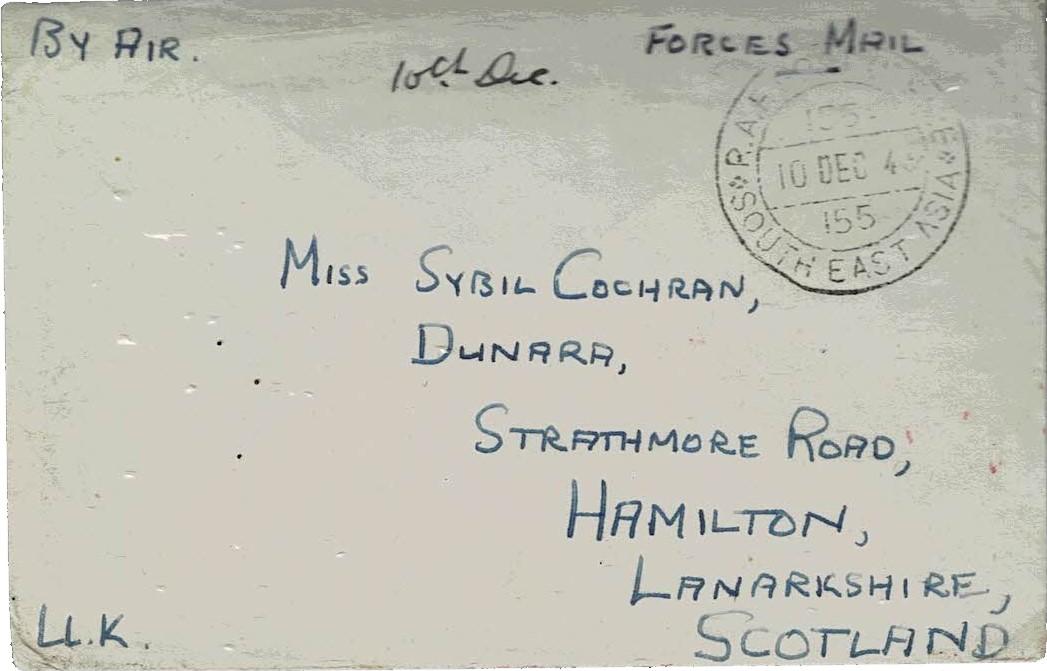 BY AIR.
10th Dec.
FORCES MAIL
R.A.F.
155
10 DEC 4
155
SOUTH EAST ASIA
MISS SYBIL COCHRAN,
DUNARA,
STRATHMORE ROAD,
HAMILTON,
LANARKSHIRE,
SCOTLAND